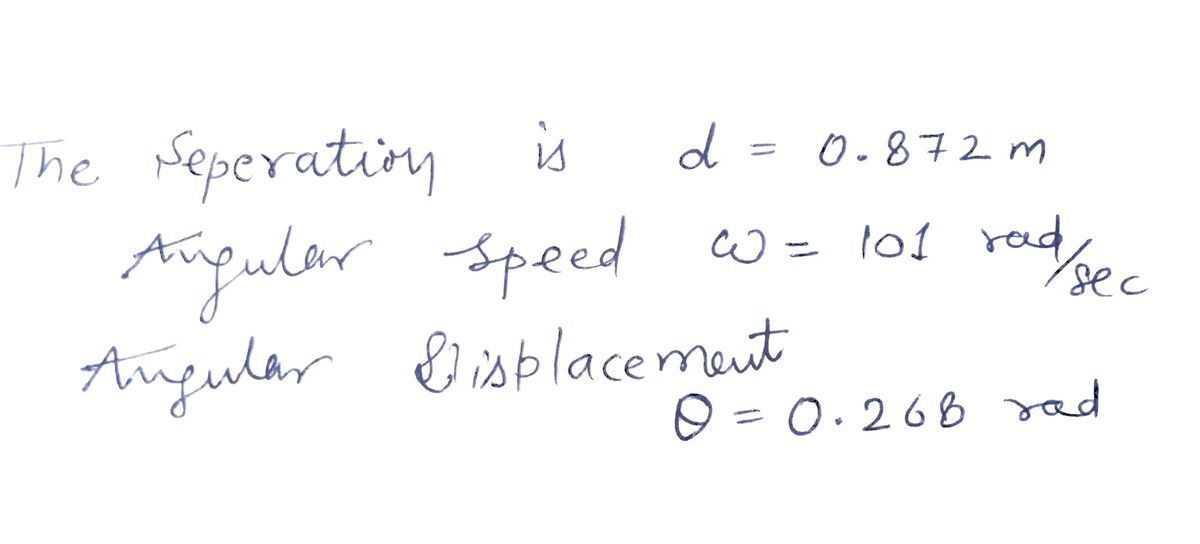 The Seperation is d = 0.872 m
Angular speed ω = 101 rad/sec
Angular Displacement
θ = 0.268 rad